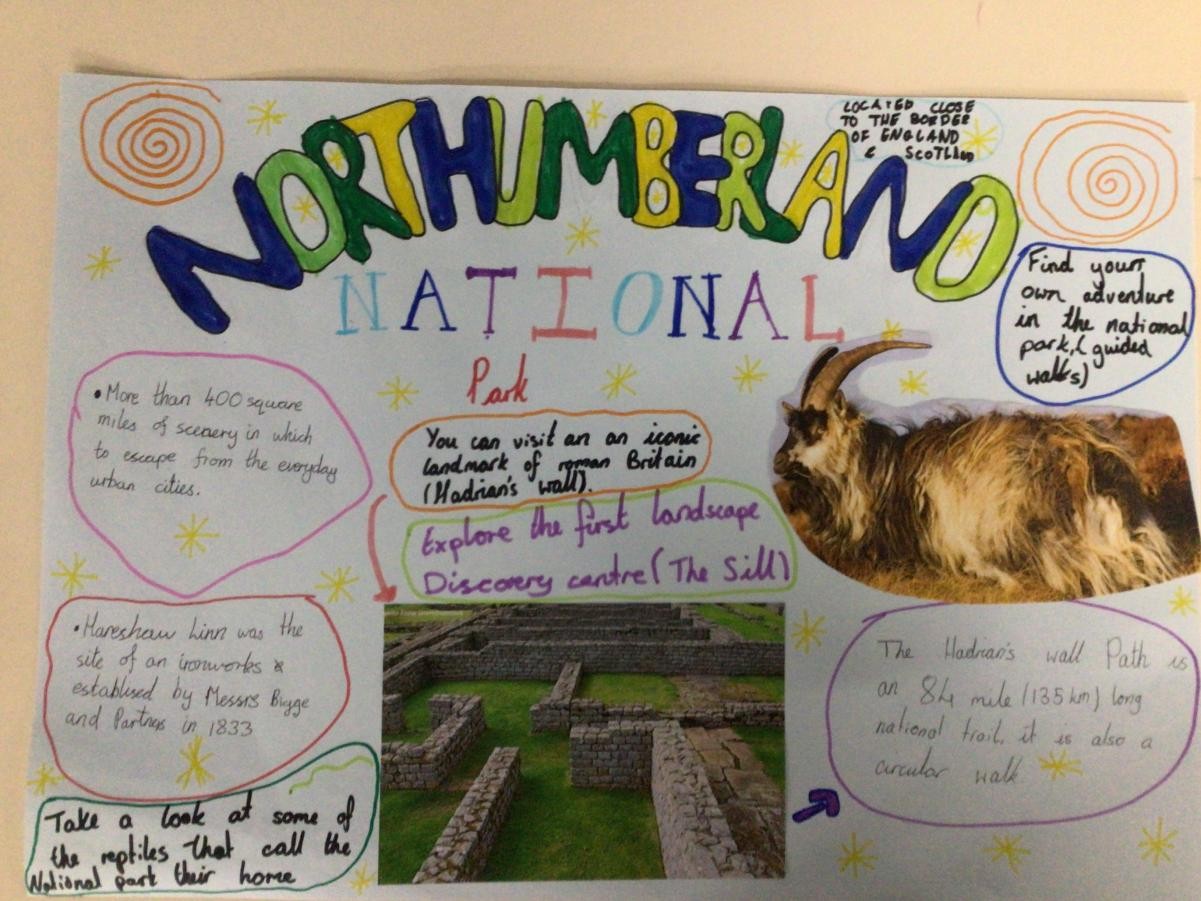 NORTHUMBERLAND
LOCATED CLOSE
TO THE BORDER
OF ENGLAND
& SCOTLAND
NATIONAL
Park
Find your
own adventure
in the national
park, (guided
walks)
• More than 400 square
miles of scenery in which
to escape from the everyday
urban cities.
You can visit an an iconic
landmark of roman Britain
(Hadrian's wall).
Explore the first landscape
Discovery centre (The Sill)
• Hareshaw Linn was the
site of an ironworks
establised by Messrs Bigge
and Partners in 1833
The Hadrian's wall Path is
an 84 mile (135km) long
national trail, it is also a
circular walk.
Take a look at some of
the reptiles that call the
National park their home